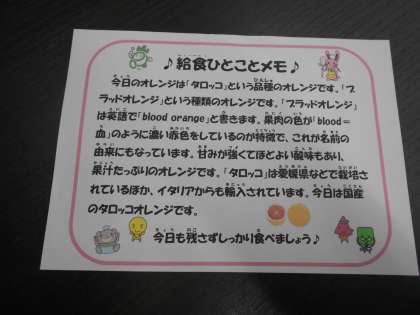 ♪給食ひとことメモ♪
今日のオレンジは「タロッコ」という品種のオレンジです。「ブ
ラッドオレンジ」という種類のオレンジです。「ブラッドオレンジ」
は英語で「blood orange」と書きます。果肉の色が「blood＝
血」のように濃い赤色をしているのが特徴で、これが名前の
由来にもなっています。甘みが強くてほどよい酸味もあり、
果汁たっぷりのオレンジです。「タロッコ」は愛媛県などで栽培さ
れているほか、イタリアからも輸入されています。今日は国産
のタロッコオレンジです。
今日も残さずしっかり食べましょう♪